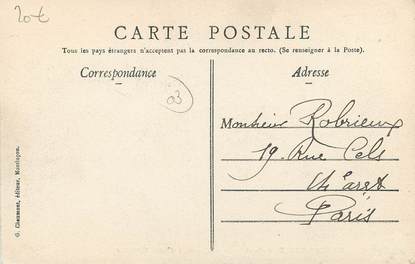 20€
CARTE POSTALE
Tous les pays étrangers n'acceptent pas la correspondance au recto. (Se renseigner à la Poste).
Correspondance
Adresse
03
Monsieur Robrieux
19, Rue Cels
Paris
G. Chaumont, éditeur, Montluçon.